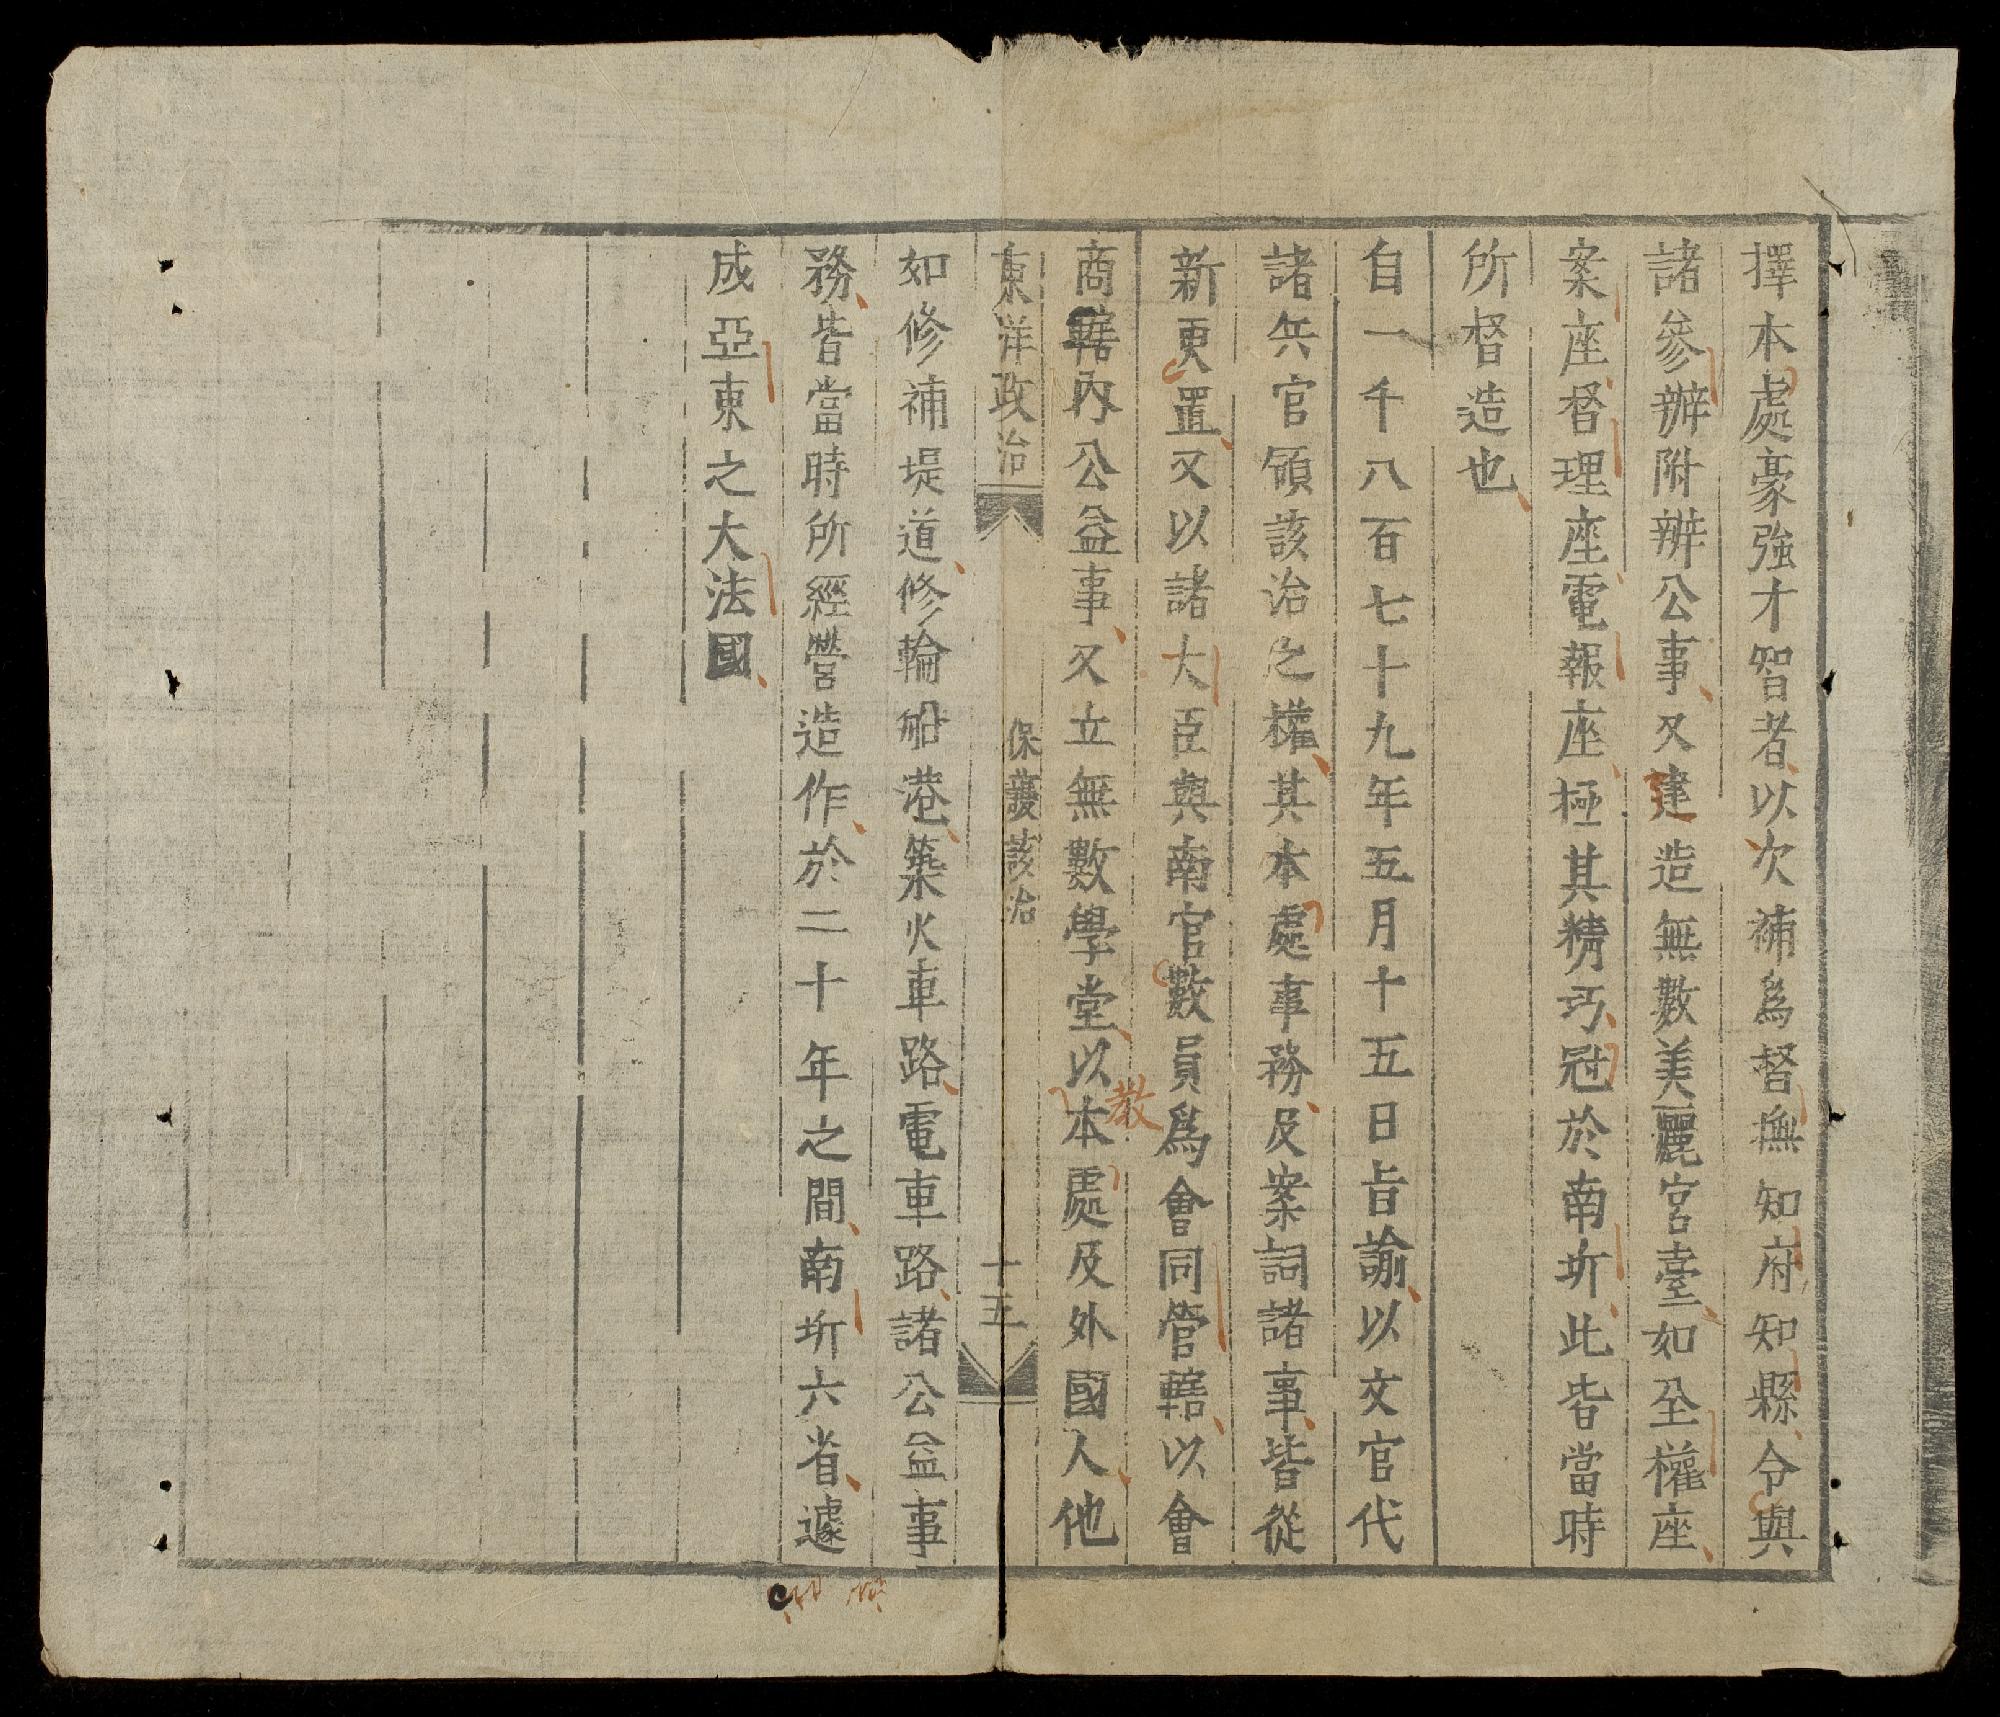 擇本處豪強才智者以次補爲督撫知府知縣令與
諸參辦附辦公事又建造無數美麗宮臺如全權座
案座督理座電報座極其精巧冠於南圻此皆當時
所督造也
自一千八百七十九年五月十五日旨諭以文官代
諸兵官領該治之權其本處事務及案詞諸事皆從
新更置又以諸大臣與南官數員爲會同管轄以會
商轄內公益事又立無數學堂以教本處及外國人他
東洋政治
保護該治
十五
如修補堤道修輪船港築火車路電車路諸公益事
務皆當時所經營造作於二十年之間南圻六省遽
成亞東之大法國